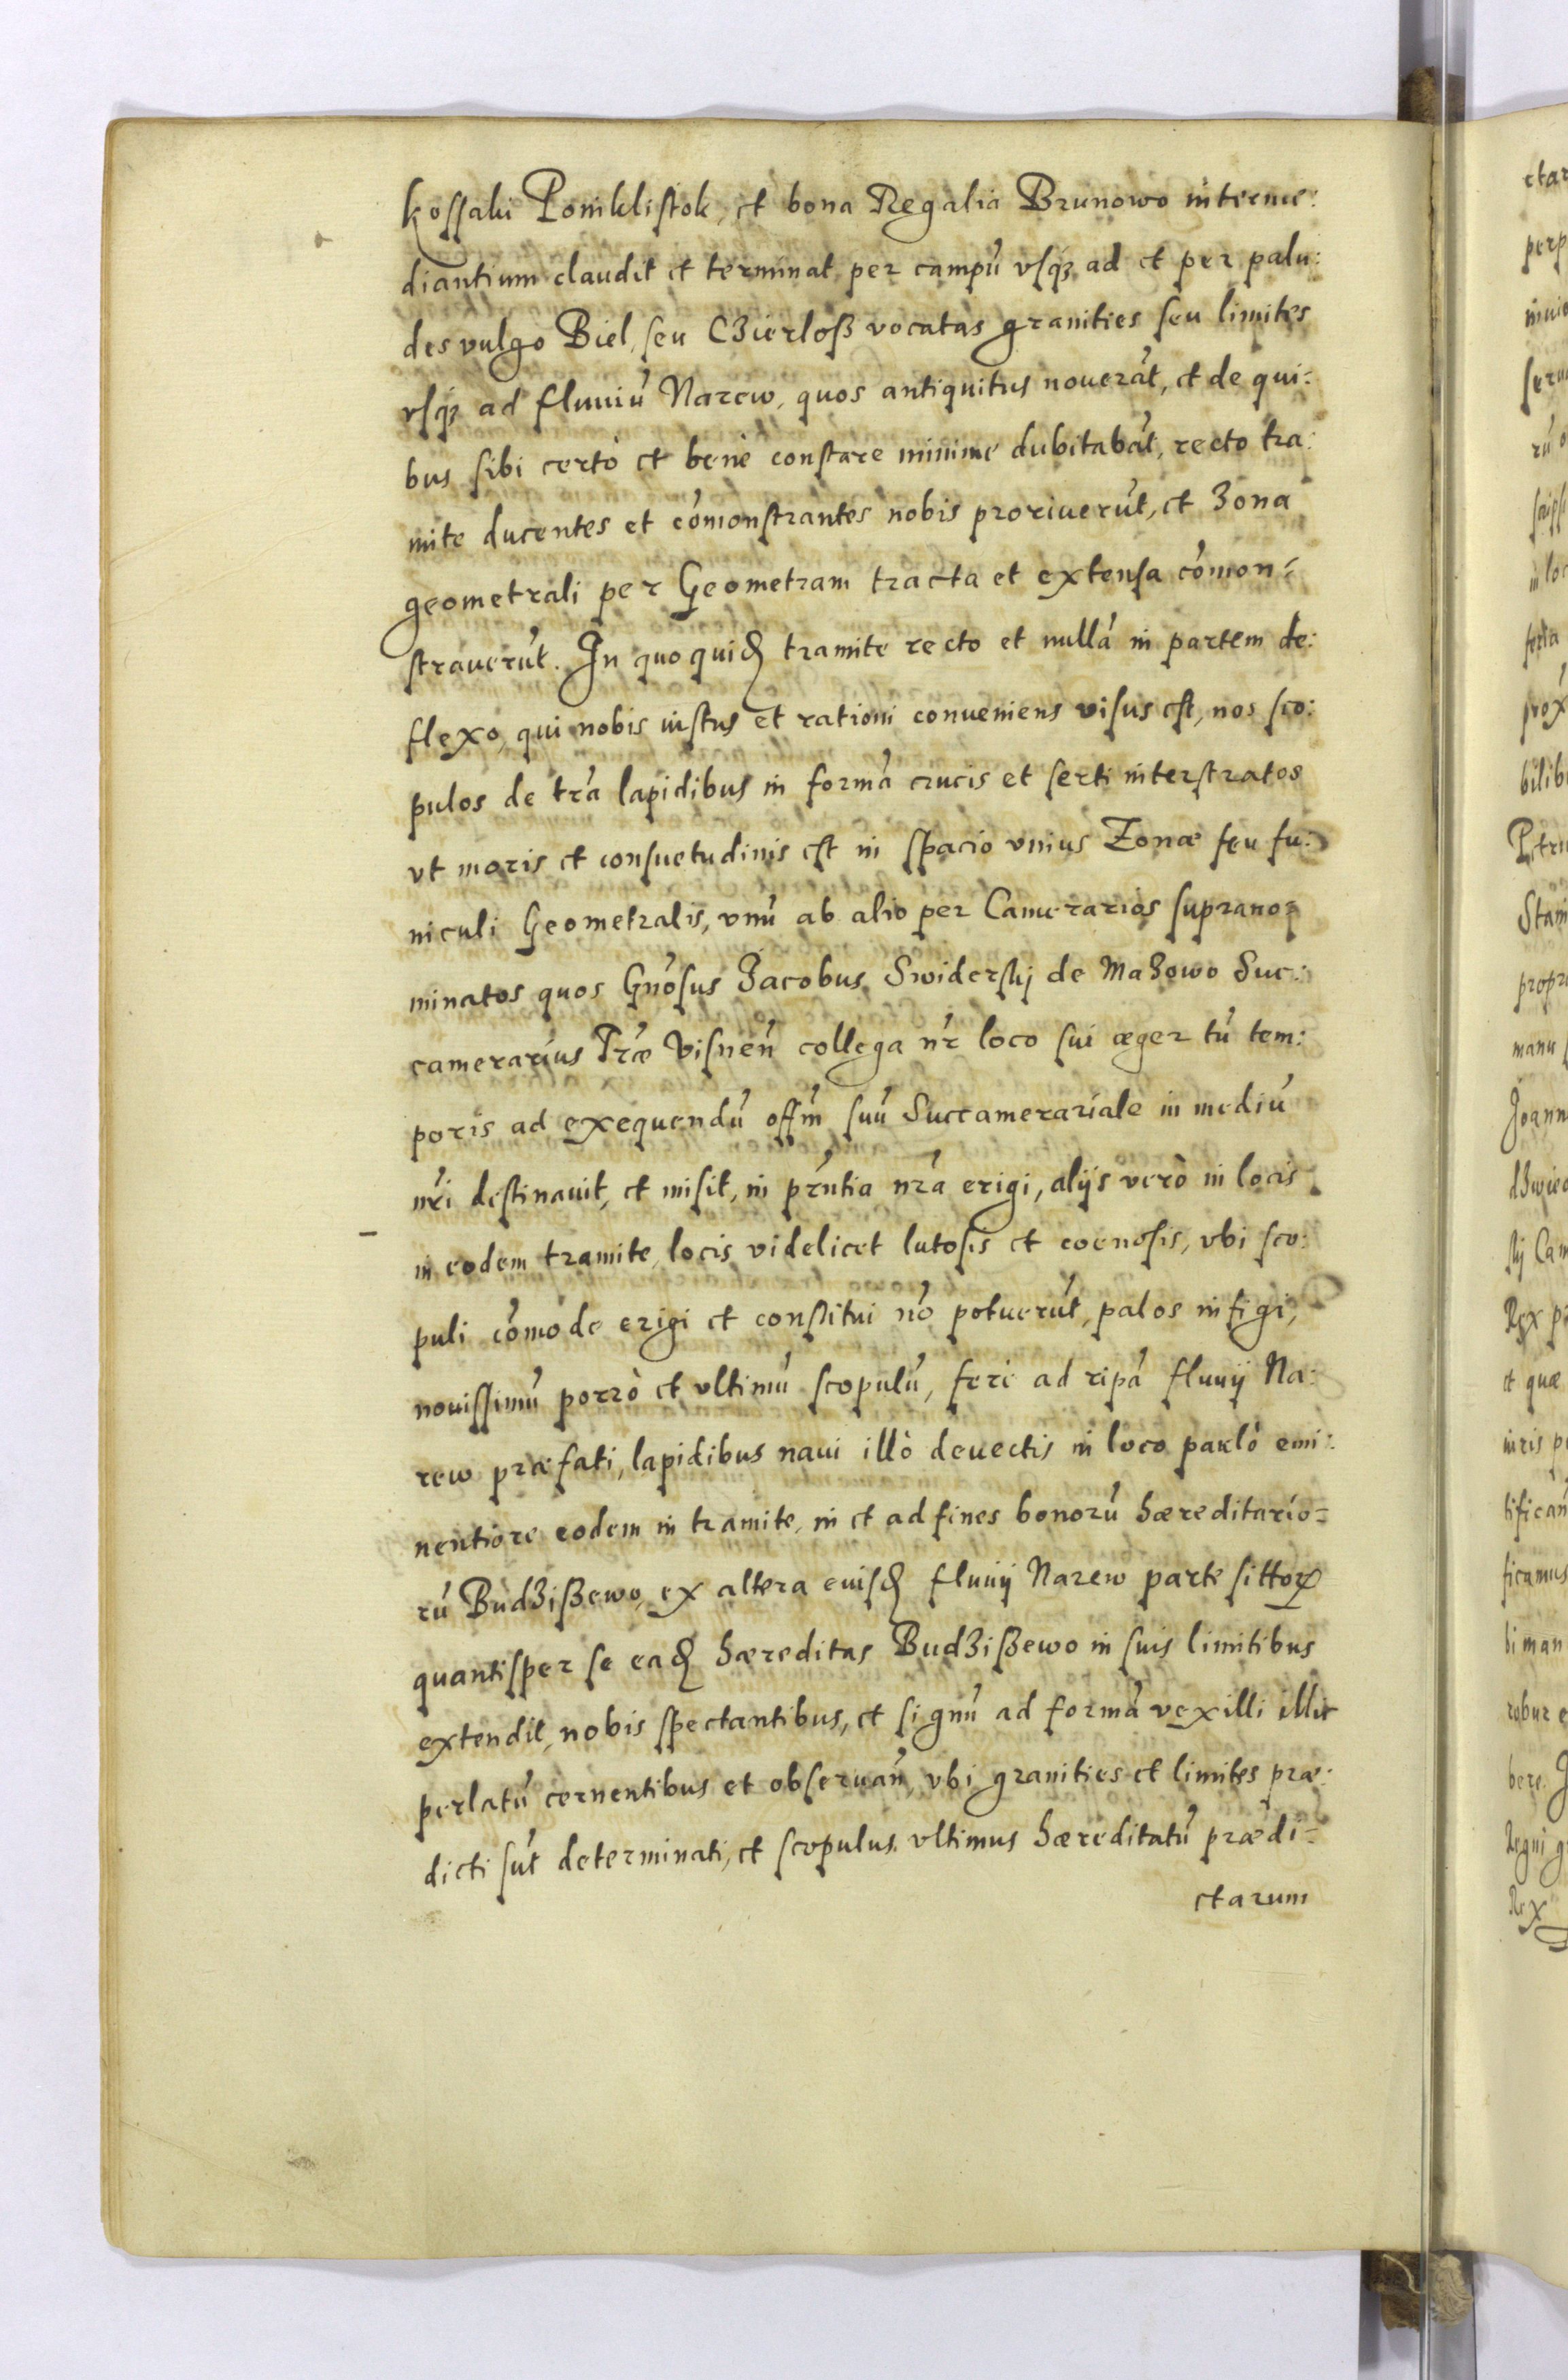 kossaki Poniklistok, et bona Regalia Brunowo interme:
diantium claudit et terminat per campũ vsq₃ ad et per palu:
des vulgo Biel, seu Czierlosz vocatas granities seu limites
vsq₃ ad fluuiũ Narew, quos antiquitus nouerãt, et de qui:
bus sibi certò et benè constare minime dubitabãt, recto tra:
mite ducentes et cõmonstrantes nobis proriuerũt, et zona
geometrali per Geometram tracta et extensa cõmon=
strauerũt. In quo quiđ tramite recto et nullã in partem de:
flexo, qui nobis iustus et rationi conueniens visus est, nos sco:
pulos de trã lapidibus in formã crucis et serti interstratos
vt moris et consuetudinis est in spacio vnius Zonæ seu fu:
niculi Geometralis, vnũ ab alio per Camerarios suprano=
minatos quos Gñosus Jacobus Swiderskj de Mazowo Suc:
camerarius Træ Visneñ collega nr̃ loco sui æger tũ tem:
poris ad exequendũ offm̃ suũ Succamerariale in mediũ
nr̃i destinauit, et misit, in prñtia nr̃a erigi, alijs verò in locis
in eodem tramite, locis videlicet lutosis et coenosis, vbi sco:
puli cõmode erigi et constitui nõ potuerũt, palos infigi,
nouissimũ porrò et vltimũ scopulũ, ferè ad ripã fluuij Na:
rew præfati, lapidibus naui illò deuectis in loco paulò emi:
nentiore eodem in tramite, in et ad fines bonorũ hæreditario=
rũ Budziszewo, ex altera euisđ fluuij Narew parte sittoꝝ
quantisper se eađ hæreditas Budziszewo in suis limitibus
extendit, nobis spectantibus, et signũ ad formã vexilli illic
perlatũ cernentibus et obseruañ, vbi granities et limites præ:
dicti sũt determinati, et scopulus vltimus hæreditatũ prædi=
ctarum